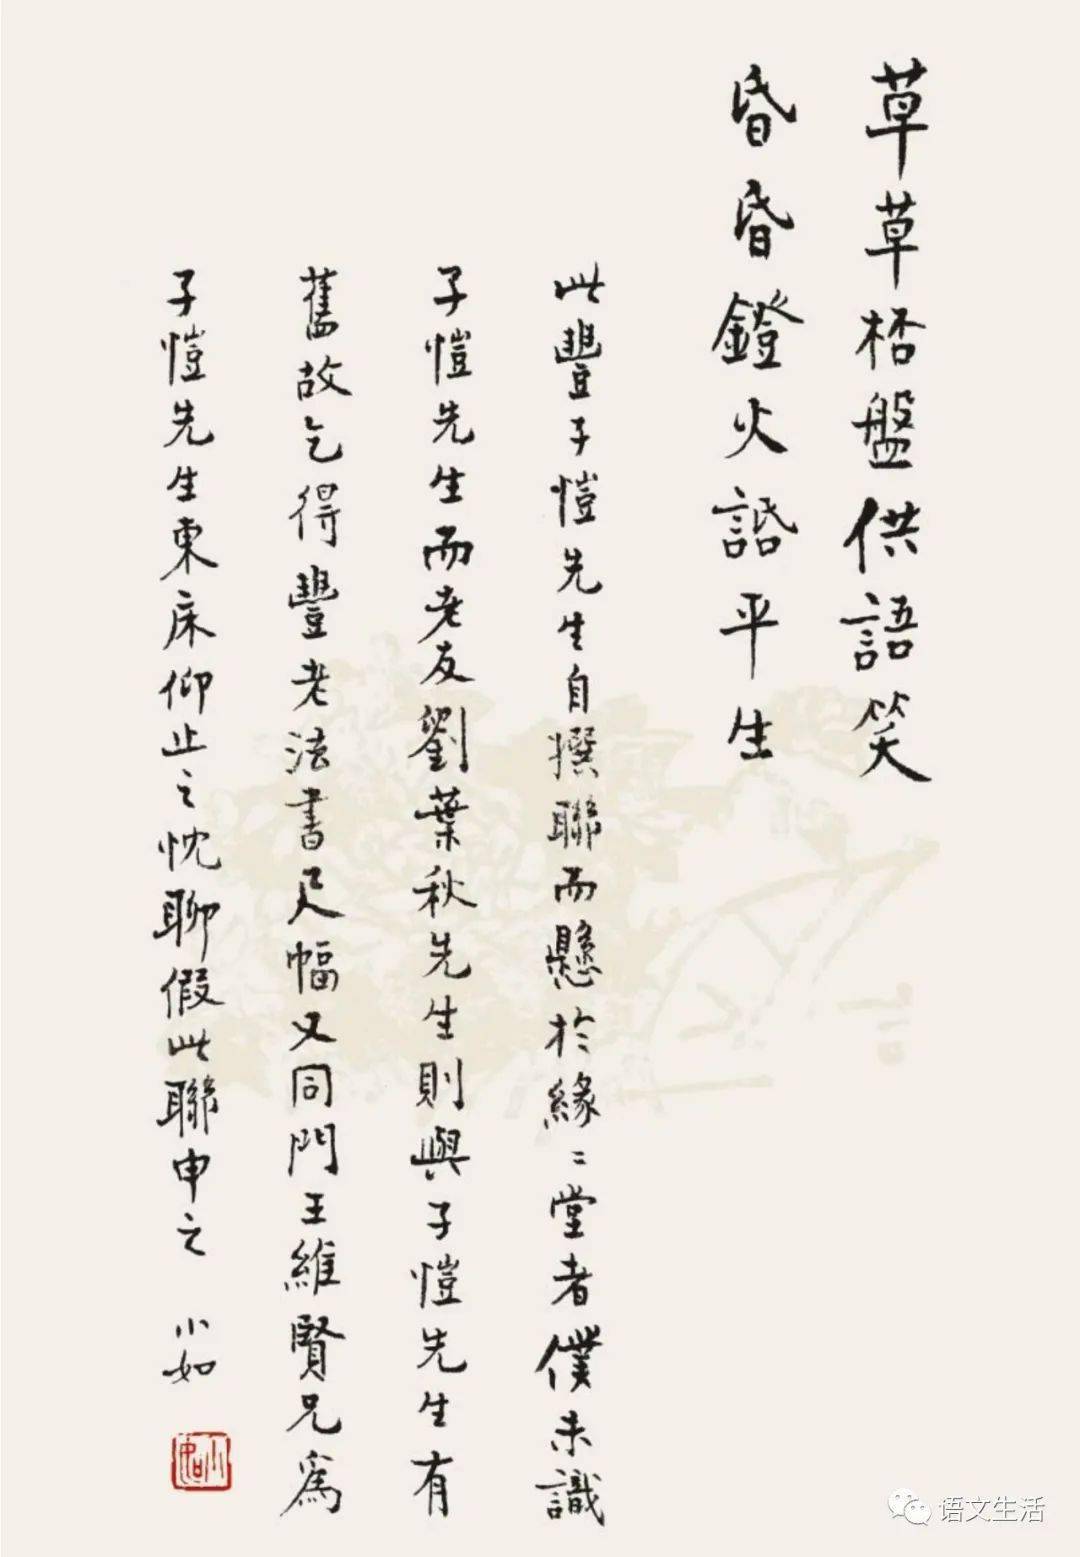 草草桮盤供語笑
昏昏鐙火話平生
此豐子愷先生自撰聯而懸於緣〻堂者僕未識
子愷先生而老友劉葉秋先生則與子愷先生有
舊故乞得豐老法書尺幅又同門王維賢兄為
子愷先生東床仰止之忱聊假此聯申之 小如
小如
语文生活